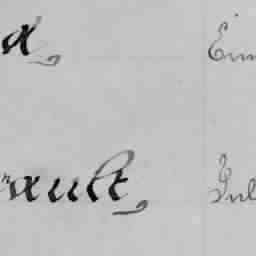 d, Em
rault, Jul